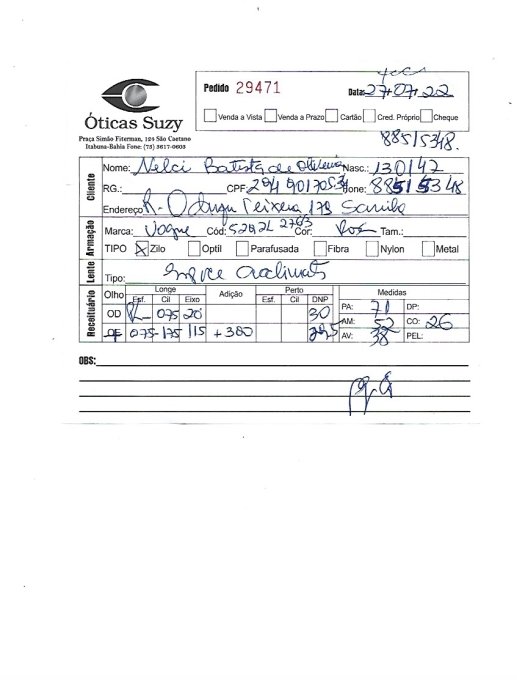 Óticas Suzy
Praça Simão Fiterman, 128 São Caetano
Itabuna-Bahia Fone: (73) 3617-0603
Pedido 29471
Data: 27-07-22
Venda a Vista Venda a Prazo Cartão Cred. Próprio Cheque
88515348.
Cliente
Nome: Nelci Batista de Oliveira Nasc.: 130147
RG.: CPF: Fone: 88515348
Endereço: R- Teixeira 178
Armação
Marca: Vogue Cód: Cor: Tam.:
TIPO X Zilo Optil Parafusada Fibra Nylon Metal
Lente
Tipo:
Receituário
Olho Longe Adição Perto Medidas
Esf. Cil Eixo Esf. Cil DNP
OD PL 075 20 30 PA: 71 DP:
OE 075-175 115 +300 AM: 52 CO: 26
AV: 38 PEL:
OBS: